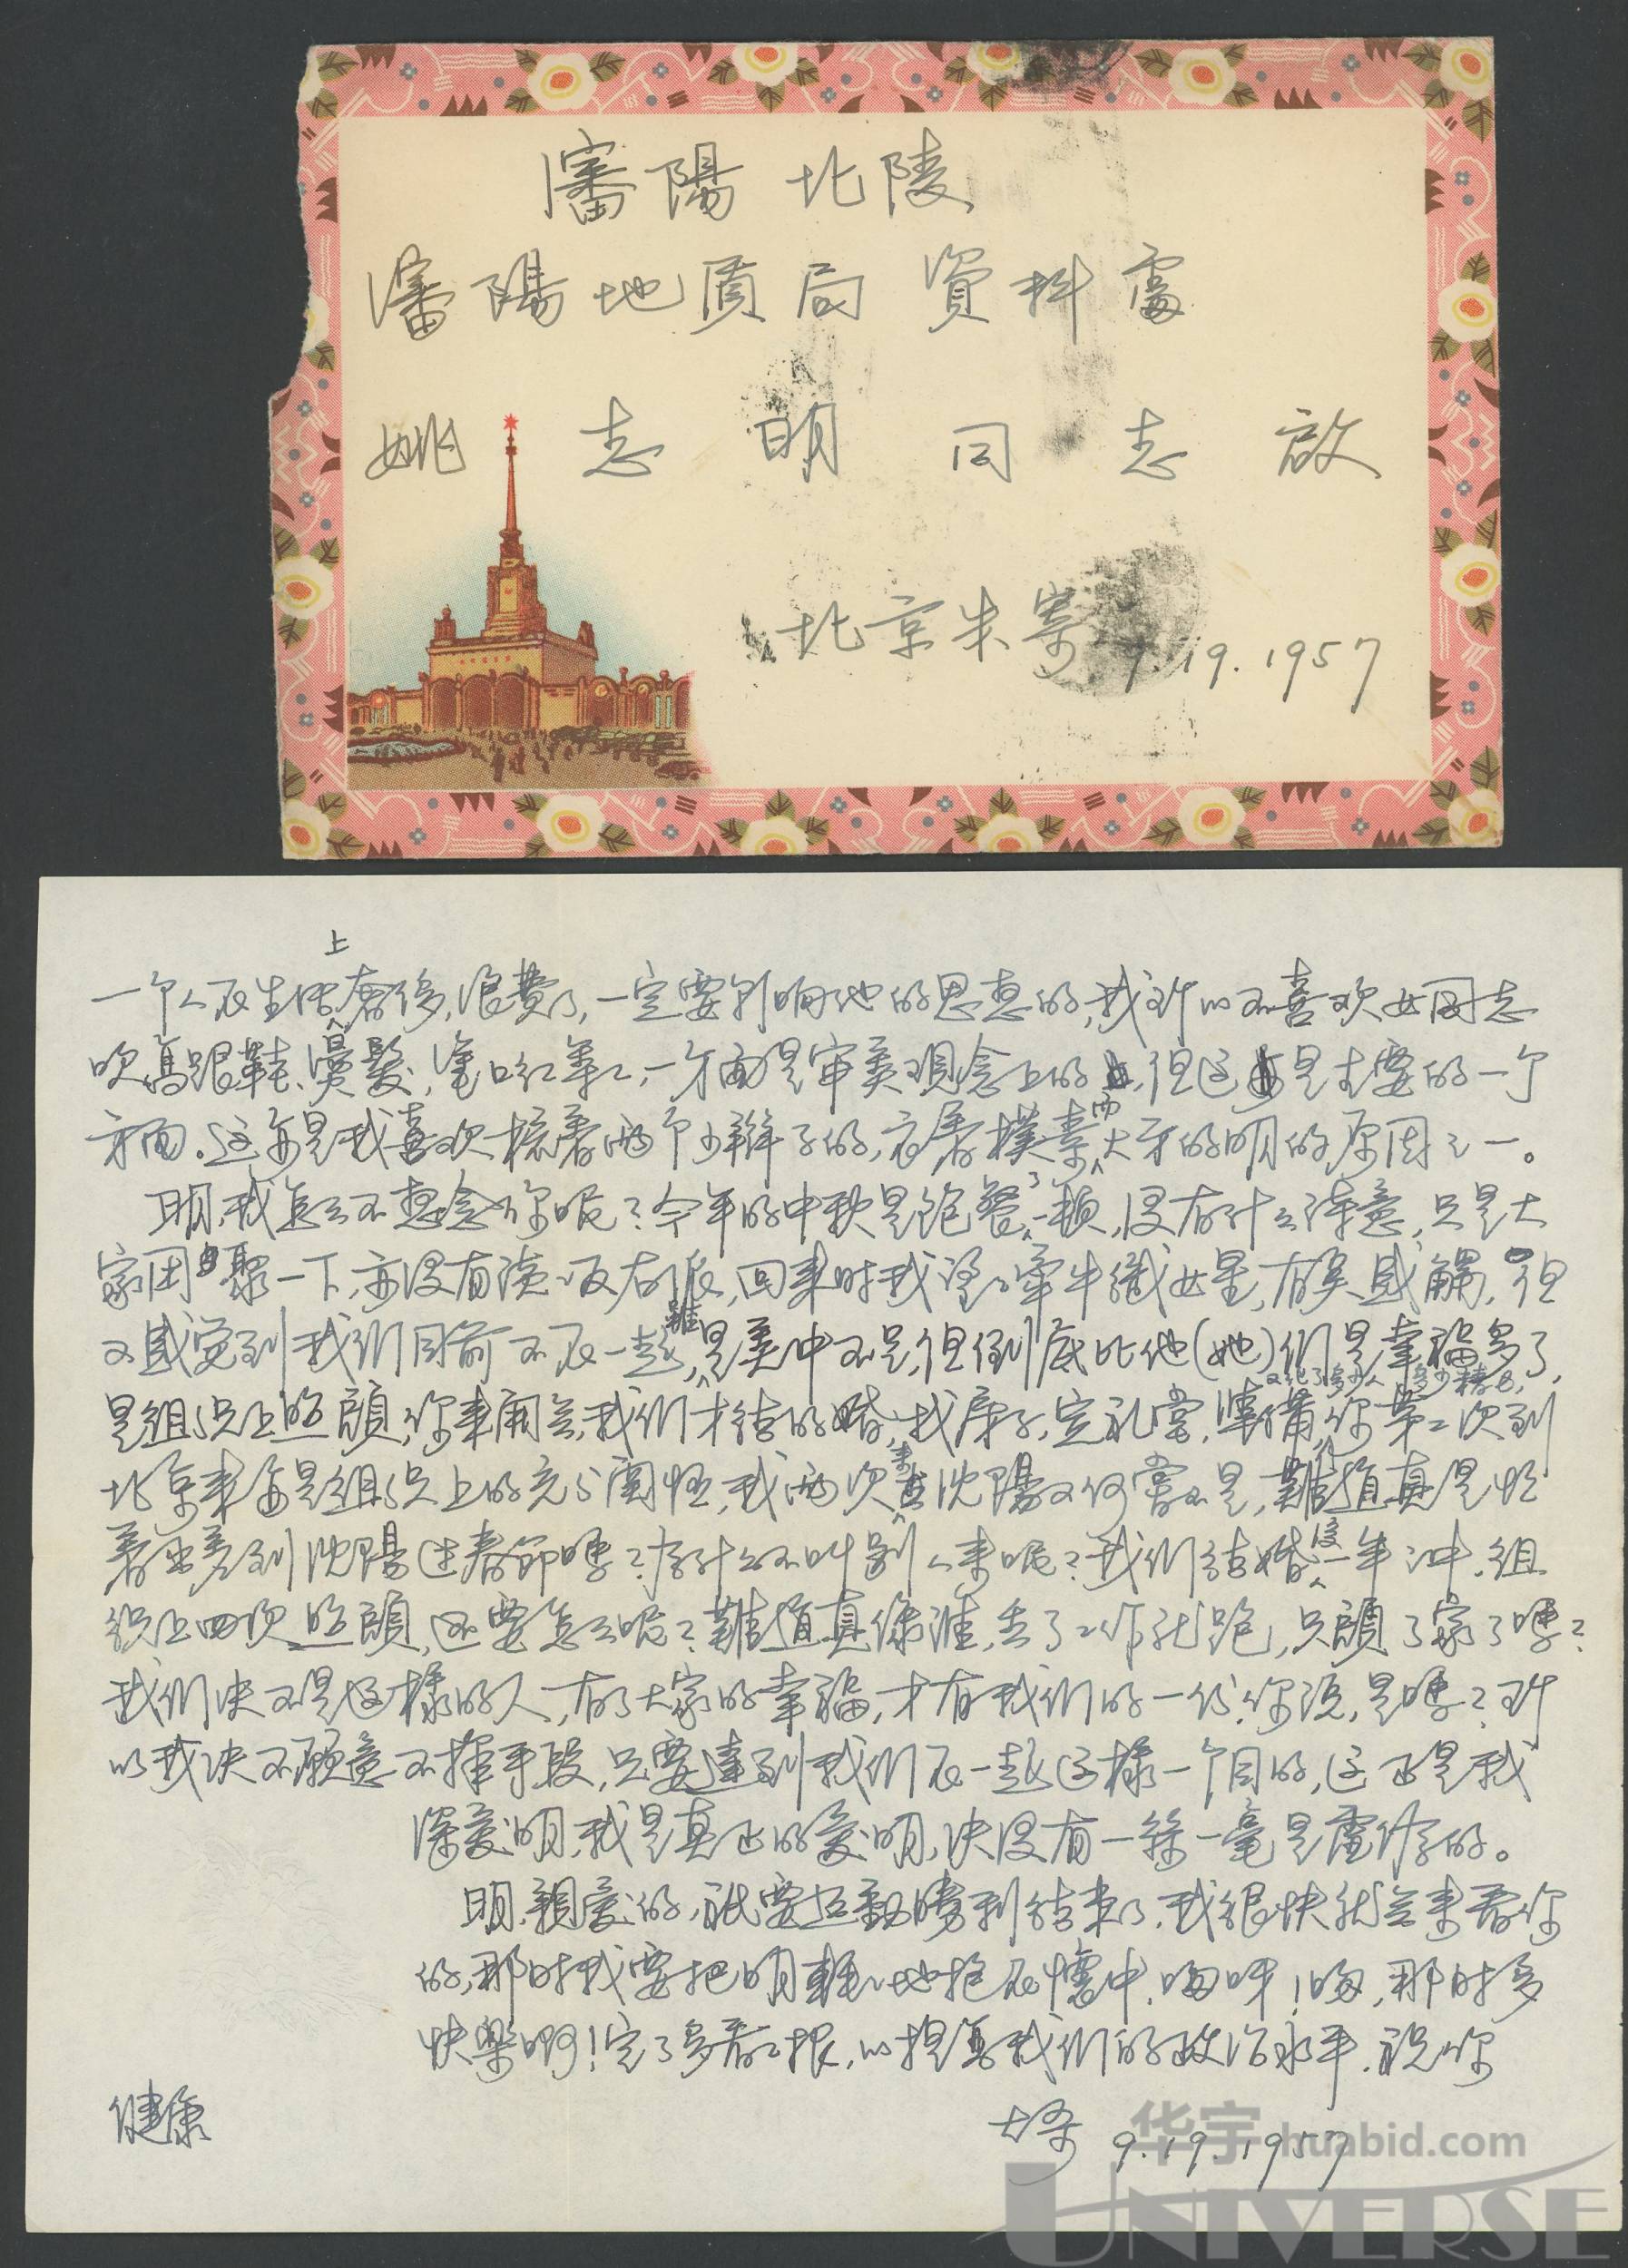 瀋陽 北陵
瀋陽地质局 資料處
姚志明同志啟
北京朱寄 9.19.1957
上
一个人在生活奢侈,浪費了,一定要影响他的思想的,我所以不喜欢女同志
吹高跟鞋、燙髮,塗口红等等,一方面是審美观念上的,但这是主要的一个
方面。这亦是我喜欢梳着两个小辮子的,衣着樸素而大方的明的原因之一。
明,我怎么不想念你呢?今年的中秋是饱餐了一頓,没有什么诗意,只是大
家团聚一下,亦没有談反右派,回来时我望望牽牛織女星,有些感觸,但
又感觉到我们目前不在一起,雖是美中不足,但倒底比他(她)们是幸福多了,
是组织上照顧,你来開会,我们才结的婚,找房子,定礼堂,準備,又化了多少人多少精力,你第二次到
北京来亦是组织上的充分関怀,我两次来沈陽又何嘗不是,難道真是忙
着出差到沈陽过春節嗎?為什么不叫别人来呢?我们结婚後一年中,组
织上四次照顧,还要怎么呢?難道真像誰,丢了工作就跑,只顧了家了嗎?
我们决不是这樣的人,有了大家的幸福,才有我们的一份,你说,是嗎?所
以我决不願意不擇手段,只要達到我们在一起这樣一个目的,这正是我
深爱明,我是真正的爱明,决没有一絲一毫是虚伪的。
明,親爱的,祇要运動勝利结束了,我很快就会来看你
的,那时我要把明輕輕地抱在懷中,嗨呀!嗨,那时多
快樂啊!完了多看看报,以提高我们的政治水平,祝你
健康
9.19.1957
华宇 huabid.com
UNIVERSE